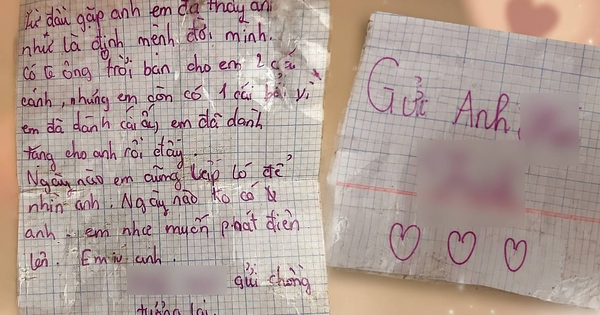 từ đầu gặp anh em đã thấy anh
như là định mệnh đời mình.
có lẽ ông trời ban cho em 2 cái
cánh, nhưng em còn có 1 cái bởi vì
em đã dành cái ấy em đã dành
tặng cho anh rồi etây
Ngày nào em cũng lấp ló để
nhìn anh. Ngày nào ko có
anh em như muốn phát điên
lên. Em iu anh.
gửi chồng
tương lai.
Gửi Anh